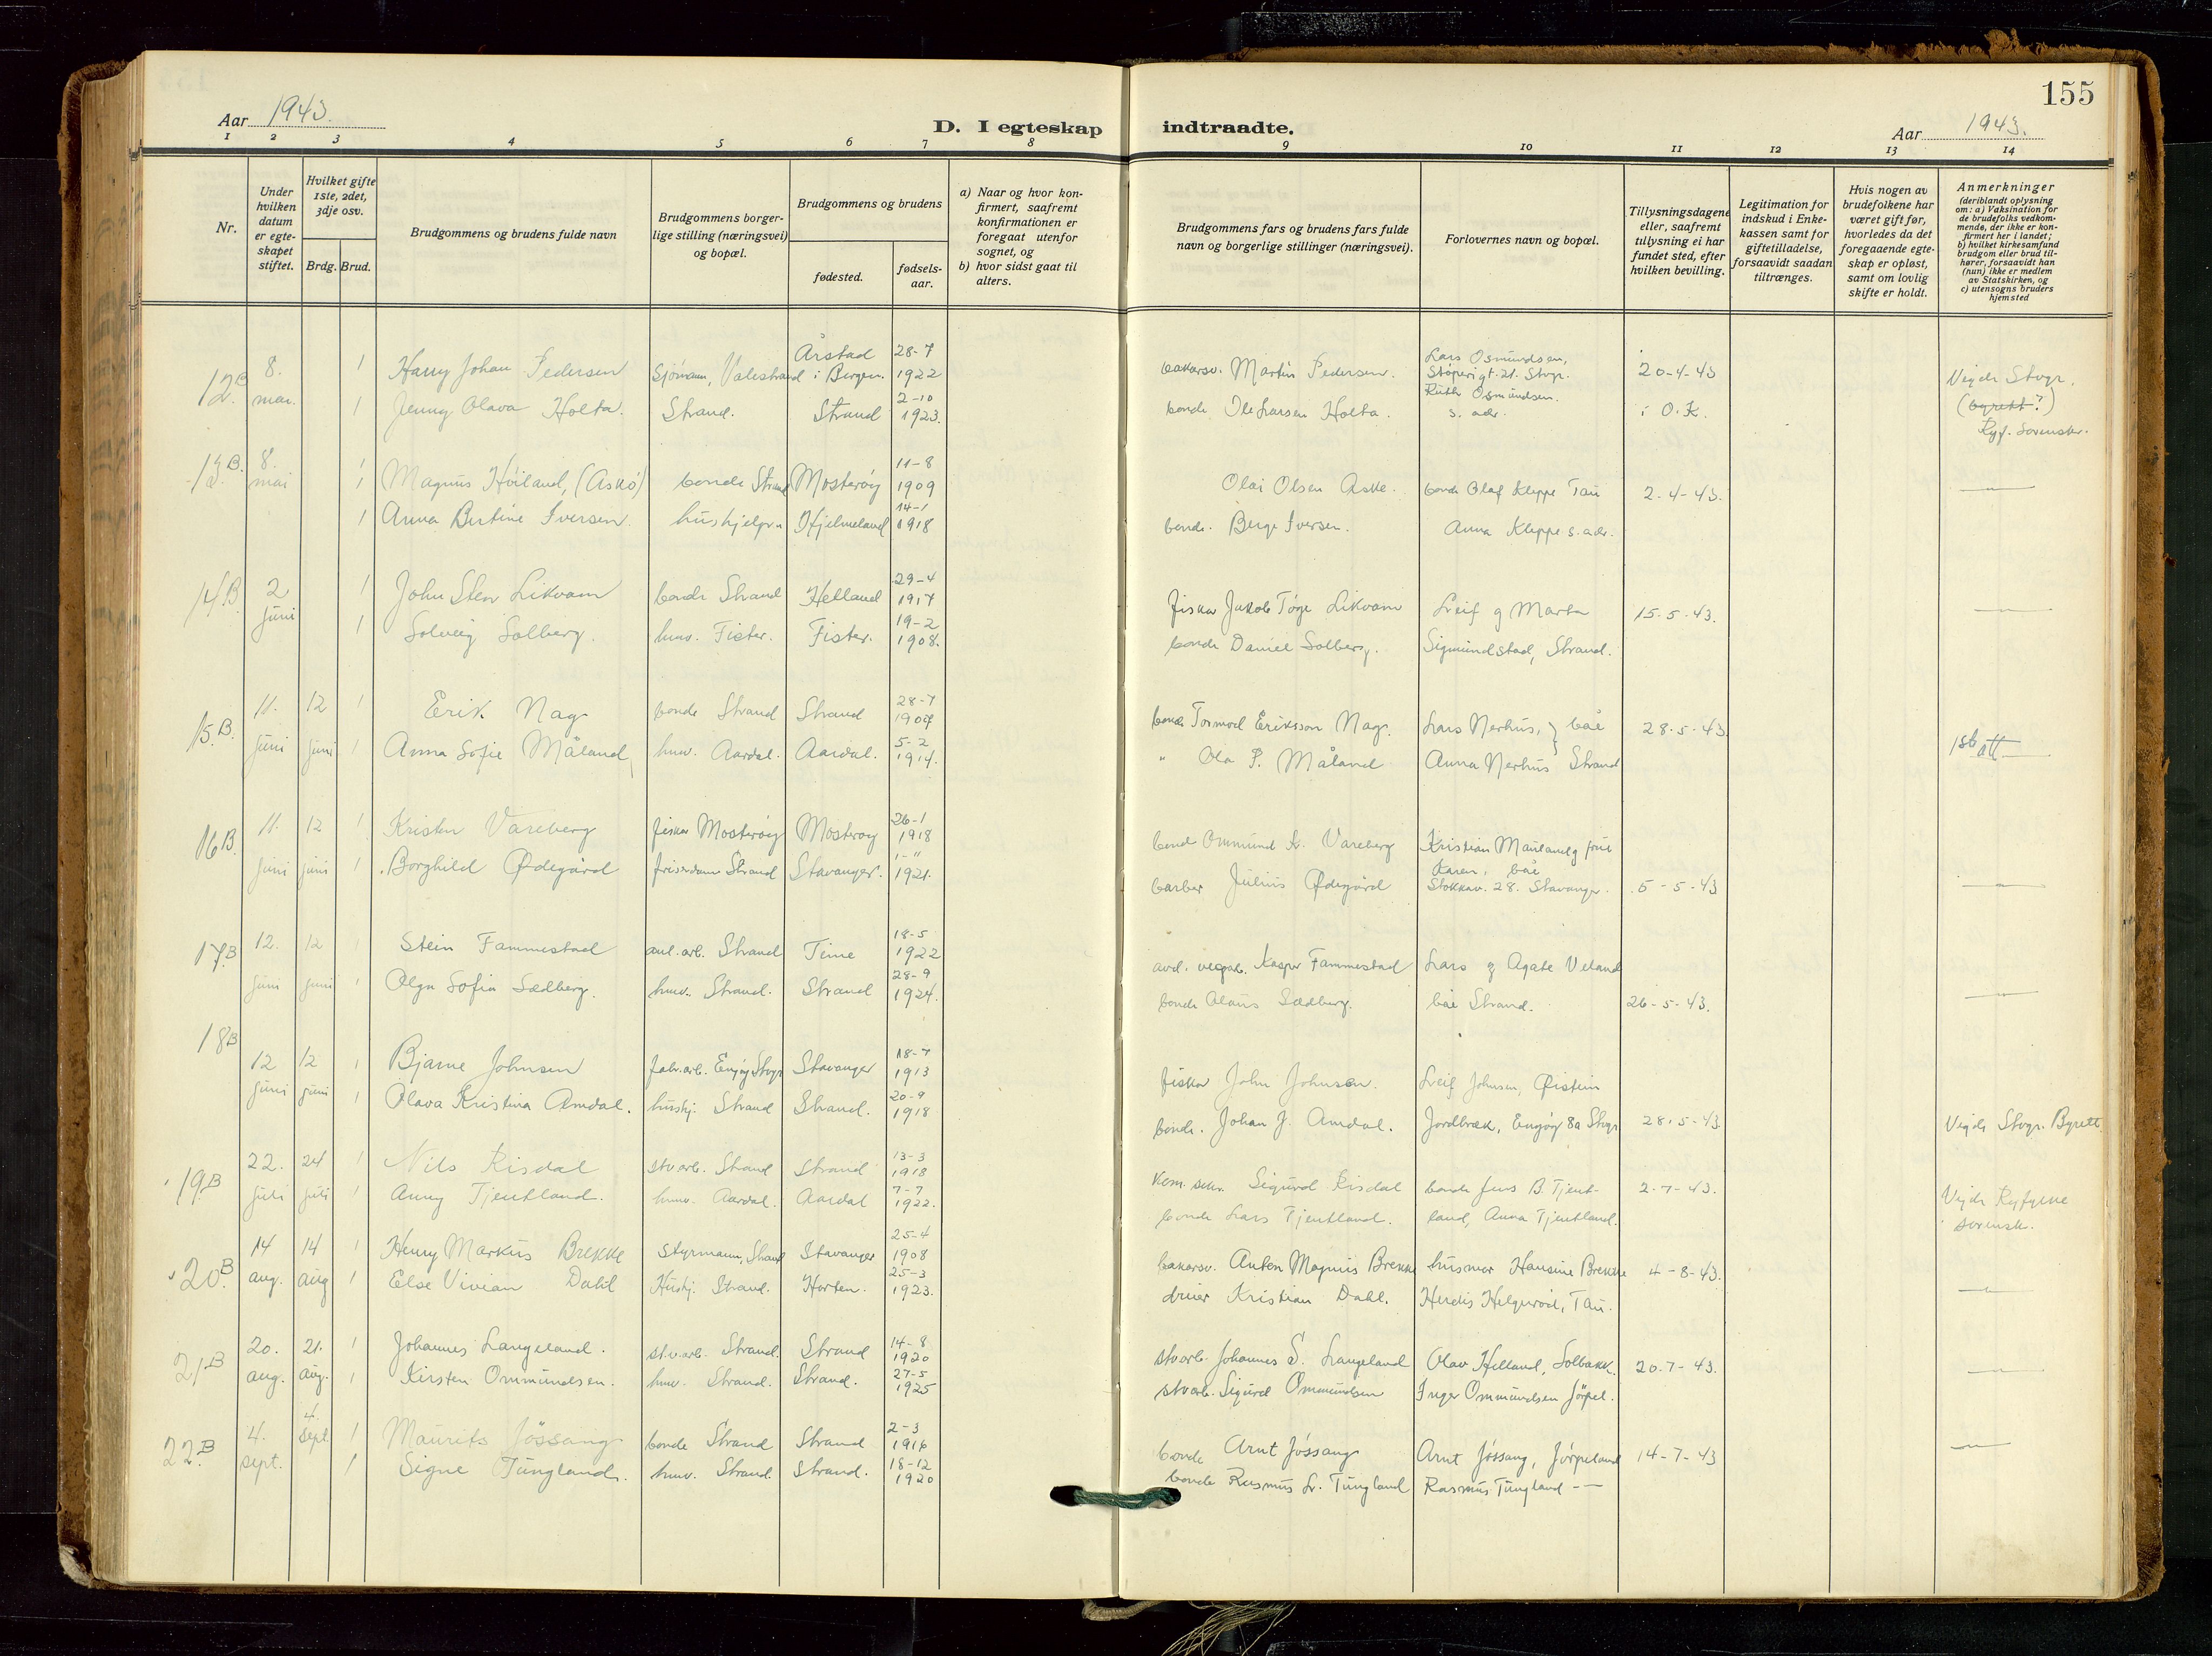 155
Aar 1943.
D. I egteskap indtraadte.
Aar 1943.
1 2 3 4 5 6 7 8 9 10 11 12 13 14
Nr.
Under hvilken datum er egte-skapet stiftet.
Hvilket gifte 1ste, 2det, 3dje osv.
Brdg. Brud.
Brudgommens og brudens fulde navn
Brudgommens borger-lige stilling (næringsvei) og bopæl.
Brudgommens og brudens
fødested.
fødsels-aar.
a) Naar og hvor kon-firmert, saafremt konfirmationen er foregaat utenfor sognet, og
b) hvor sidst gaat til alters.
Brudgommens fars og brudens fars fulde navn og borgerlige stillinger (næringsvei).
Forlovernes navn og bopæl.
Tillysningsdagene eller, saafremt tillysning ei har fundet sted, efter hvilken bevilling.
Legitimation for indskud i Enke-kassen samt for giftetilladelse, forsaavidt saadan tiltrænges.
Hvis nogen av brudefolkene har været gift før, hvorledes da det foregaaende egte-skap er opløst, samt om lovlig skifte er holdt.
Anmerkninger (deriblandt oplysning om: a) Vaksination for de brudefolks vedkom-mende, der ikke er kon-firmert her i landet; b) hvilket kirkesamfund brudgom eller brud til-hører, forsaavidt han (hun) ikke er medlem av Statskirken, og c) utensogns bruders hjemsted
12B 8. mai. 1 Harry Johan Pedersen Sjömann, Valestrand Årstad i Bergen. 28-7 1922 bakersv. Martin Pedersen. Lars Osmundsen, Støperigt. 21. Stvgr. 20-4-43 Vigde Stvgr. (byrett?)
1 Jenny Olava Holta. Strand. Strand 2-10 1923. bonde Ole Larsen Holta. Ruth Osmundsen. s. adr. i O.K. Ryf. Sorenskr.
13B. 8. mai 1 Magnus Höiland, (Askö) bonde Strand Mosteröy 11-8 1909 Olai Olsen Aske. bonde Olaf Kleppe Tau 2-4-43.
1 Anna Bertine Iversen. hushjelp Hjelmeland 14-1 1918 bonde. Berge Iversen. Anna Kleppe s. adr.
14B 2 juni 1 John Sten Likvam bonde Strand Helland 29-4 1917 fisker Jakob Töge Likvam Leif g Marta 15-5-43.
1 Solveig Solberg. hmv. Fister. Fister. 19-2 1908. bonde Daniel Solberg. Sigmundstad, Strand.
15.B. 11. juni 12 juni 1 Erik Nag bonde Strand Strand 28-7 bonde Tormod Eriksson Nag. Lars Nerhus, båe 28-5-43.
1 Anna Sofie Måland hmv. Aardal. Aardal. 5-2 1914. " Ola P. Måland Anna Nerhus Strand
16B. 11. juni 12 juni 1 Kristen Vareberg fisker Mosteröy Mosteröy 26-1 1918 bonde Ommund K. Vareberg Kristian Mauland g frue
1 Borghild Ødegård Strand Stavanger. 1921. barber Julius Ødegård Karen, båe Stokkav. 28. Stavanger. 5-5-43
17B 12. juni 12 juni Stein Fammestad anl. arb. Strand Time 18-5 1922 Kasper Fammestad Lars g Agate Veland
1 Olga Sofia Sædberg. hmv. Strand. Strand 28-9 1924. bonde Olaus Sædberg. båe Strand. 26-5-43.
18B 12 juni 12 juni 1 Bjarne Johnsen fabr. arb. Engöy Stvgr Stavanger 18-7 1913 fisker John Johnsen. Leif Johnsen, Øistein
1 Olava Kristina Amdal. hushj. Strand Strand. 20-9 1918 bonde. Johan J. Amdal. Jordbræk, Engöy 8a Stvgr 28-5-43. Vigde Stvgr. Byrett.
19B 22. juli 24 juli 1 Nils Risdal stv arb. Strand Strand 13-3 1918 Sigurd Risdal bonde Jens B. Tjent- 2-7-43. Vigde Ryfylke
1 Anny Tjentland. hmv. Aardal. Aardal 7-7 1922. bonde Lars Tjentland. land, Anna Tjentland. sorensk.
20B. 14 aug. 14 aug 1 Henry Markus Brekke styrmann, Strand Stavanger 25-4 1908 bakersv. Anton Magnus Brekke husmor Hansine Brekke 4-8-43.
1 Else Vivian Dahl Hushj. Strand. Horten. 25-3 1923. dreier Kristian Dahl. Herdis Helgerød, Tau.
21B 20. aug. 21. aug. 1 Johannes Langeland. stv. arb. Strand. Strand 14-8 1920 stv arb. Johannes S. Langeland Olav Helland, Solbakk. 20-7-43.
1 Kirsten Ommundsen. hmv. Strand. Strand. 27-5 1925 stv arb. Sigurd Ommundsen Inger Ommundsen Jörpel.
22B 4. sept. 4. sept. 1 Maurits Jössang bonde Strand Strand 2-3 1916 bonde Arnt Jössang Arnt Jössang, Jörpeland 14-7-43
1 Signe Tungland. hmv. Strand. Strand. 18-12 1920 bonde Rasmus Lr. Tungland Rasmus Tungland